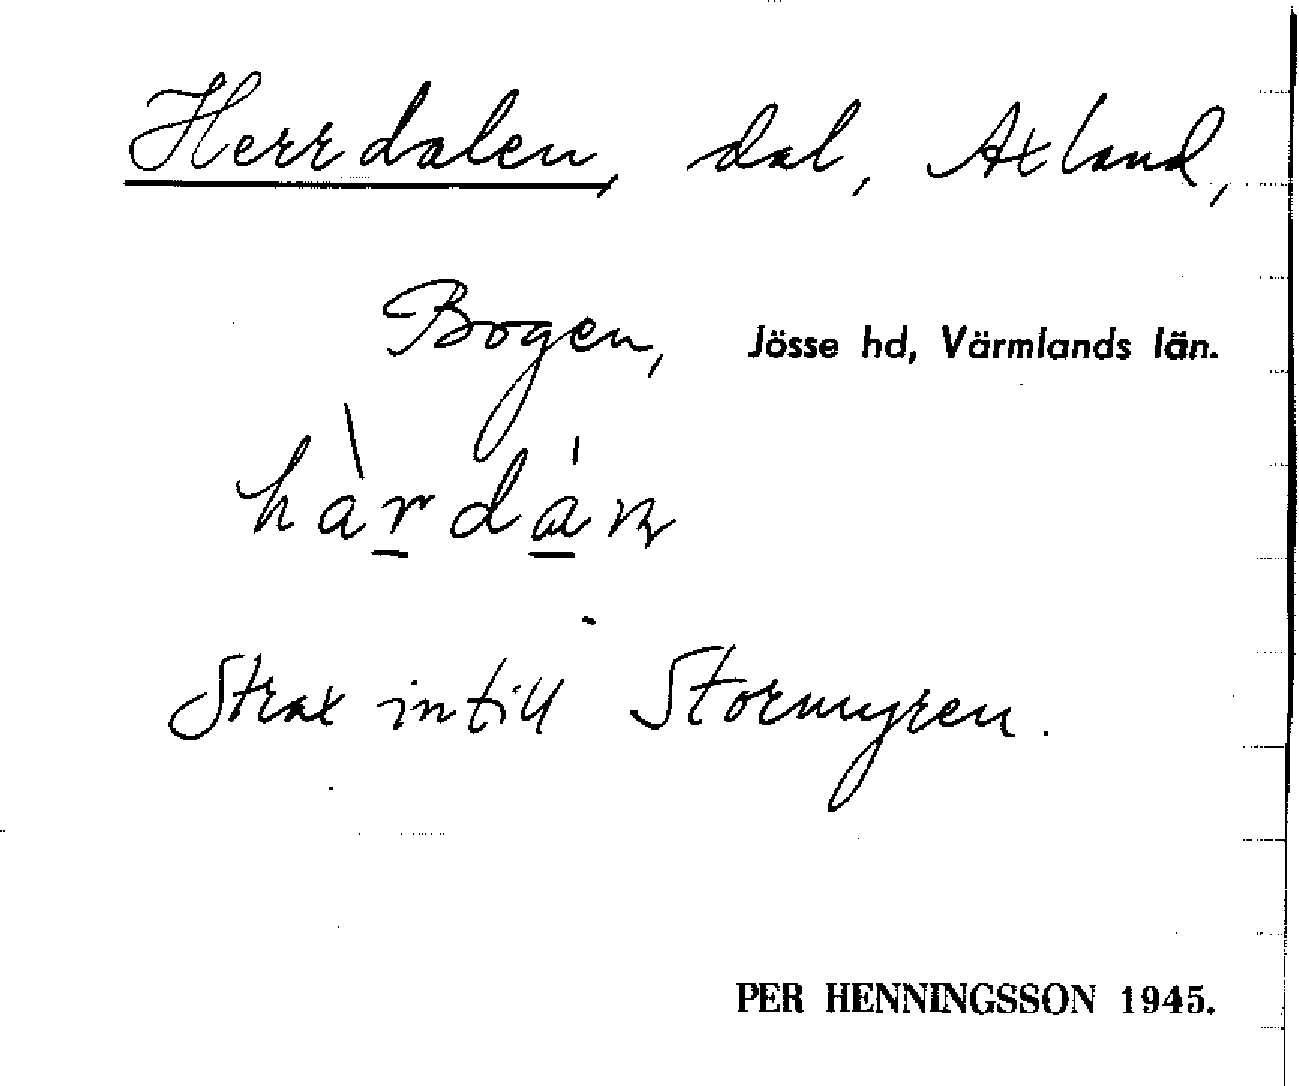 Herrdalen, dal, Axland,
Bogen, Jösse hd, Värmlands län.
hàrdán
Strax intill Stormyren.
PER HENNINGSSON 1945.